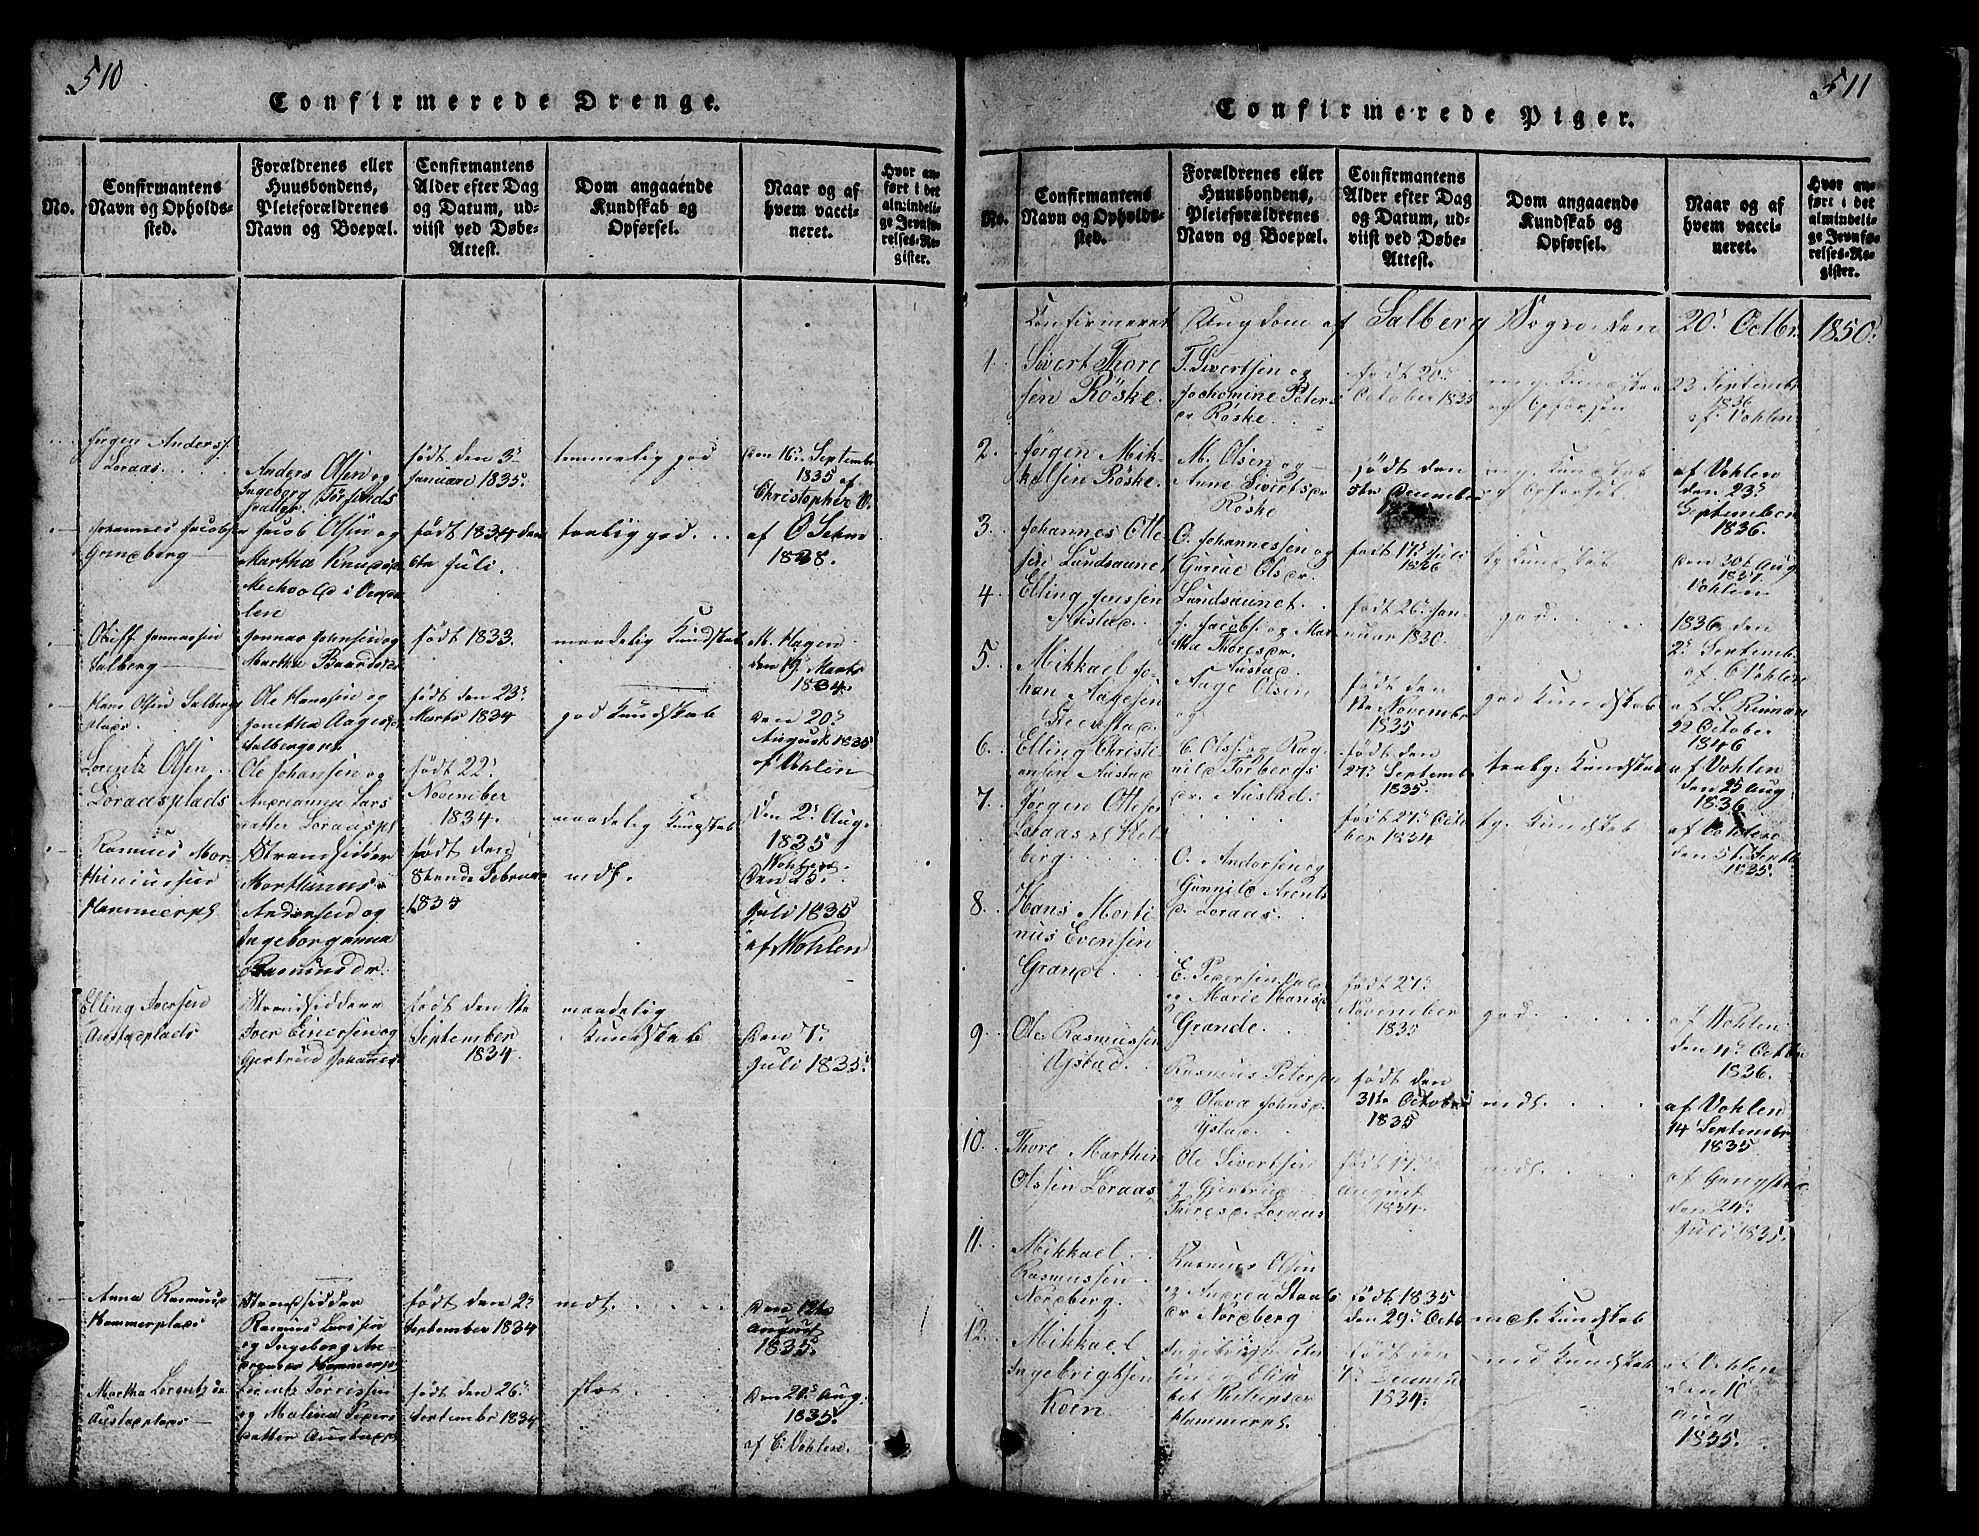 510
Confirmerede Drenge.
No.
Confirmantens
Navn og Opholds-
sted.
Forældrenes eller
Huusbondens,
Pleieforældrenes
Navn og Boepæl.
Confirmantens
Alder efter Dag
og Datum, ud-
viist ved Døbe-
Attest.
Dom angaaende
Kundskab og
Opførsel.
Naar og af
hvem vacci-
neret.
Hvor an-
ført i det
almindeli-
ge Jevnfø-
relses-Re-
gister.
Jørgen Anders.
Loraas
Anders Olsen og
Ingeborg
datter.
født den 3
Januari 1835.
temmelig god
den 16. Septembr
1835 af
Christopher V.
Johannes Jacobs
Grindberg
Jacob Olsen og
Martha Knuds
født 1834 den
6te Juli.
af O
1838.
Oluff Jonnassen
Salberg
Jonnas Johnsen og
Martha Baardsdr
født 1833.
maadelig Kundskab
M. Hagen
den 19. Marts
1834.
Hans Olsen Salberg
plads.
Ole Hansen og
født den 23
Marts 1834
god Kundskab
den 20
August 1835
af Vohlen
Lorentz Olsen
Loraasplads
Ole Johansen og
Lars
datter Loraaspl
født 22
November
1834.
maadelig Kundskab
Den 2. Aug.
1835
Rasmus Mor-
Hammerpl
Strandsidder
Andersen og
født den
8tende Februar
1834
mdl.
den 25
Juli 1835
af Wohlen
Elling Iversen
Austadplads
Iver Einersen og
Gjertrud Johannes
født den 1te
September
1834.
maadelig
Kundskab
den 7
Juli 1835.
Anna Rasmusd
Hammerplads
Strandsidder
Rasmus Larssen
og Ingeborg An-
Hammerpl
født den 2
September 1834
mdl.
den 12te
August
1835.
Martha Lorentz
Austadplads
Lorentz Tørrissen
og Malena Peders
datter Austadpl
født den 26
September 1834
slet
den 20 Aug.
1835.
af C. Vohlen.
511
Confirmerede Piger.
No.
Confirmantens
Navn og Opholds-
sted.
Forældrenes eller
Huusbondens,
Pleieforældrenes
Navn og Boepæl.
Confirmantens
Alder efter Dag
og Datum, ud-
viist ved Døbe-
Attest.
Dom angaaende
Kundskab og
Opførsel.
Naar og af
hvem vacci-
neret.
Hvor an-
ført i det
almindeli-
ge Jevnfø-
relses-Re-
gister.
Confirmeret Ungdom af Salberg Sogn, den 20 Octbr 1850.
1.
Sivert Thore
sen Röske.
T. Sivertsen og
Jochomine Peters
dr Röske.
født 20
October 1835
mg. Kundskab
og Opførsel
23 Septembr
1836
af Vohlen
2.
Jørgen Mik-
kelsen Röske.
M. Olsen og
Anne Sivertsdr
Röske
født den
5te December
mg. Kundskab
og Opførsel
af Vohlen
den 23
September
1836.
3.
Johannes Otte
sen Lundsaunet
O. Johannessen og
Olsdr.
Lundsaunet.
født 17 Juli
1836
tg Kundskab
den 30t Aug
1837.
Vohlen
4
Elling Jenssen
Austad.
J. Jacobs. og Mar
tha Thoresdr.
Austad.
født 26 Jan
uar 1830.
god.
1836 den
2 Septemb.
af Vohlen
5.
Mikkael Jo-
han Aagesen
Aage Olsen
og
født den
1te November
1835
god Kundskab
af L. Rinnan
22 October
1846
6.
Elling Christi
ansen Austad
C. Olss. og Rag
nild Torbergs
dr. Austad.
født den
27 Septemb
1835.
Kundskab
af Vohlen
den 25 Aug
1836
7.
Jørgen Ottesen
Loraas
berg
O. Andersen og
Gunnild Arents
d. Loraas.
født 27 Octo
ber 1834
tg. Kundskab
af Vohlen
den 5t Septb
1835.
8.
Hans Morti
nus Evensen
Grande.
E. Pedersen
og Marie Hansd
Grande.
født 27
November
1835
god.
af Wohlen
den 4 Octbr
1836.
9.
Ole Rasmussen
Ystad.
Rasmus Petersen
og Olava Johnsd.
Ystad.
født den
31te October
1835
mdl.
af Vohlen
14 Septembr
1835
10.
Thore Marthin
Olssen Loraas
Ole Sivertsen
og Gjertrud
Thoresd. Loraas
født 17
August
1834.
mdl.
den 24
Juli 1835.
11.
Mikkael
Rasmussen
Nordberg.
Rasmus Olsen
og Andrea Staals
dr Nordberg
født 1835
den 29 Octb
md. Kundskab
12.
Mikkael
Ingebrigtsen
Koen
Ingebrigt Peter
sen og Elisa
bet Philipsdr
Hammerpl.
født den
7 Decemb
1834.
md Kundskab
af Vohlen
den 10
Aug
1835.